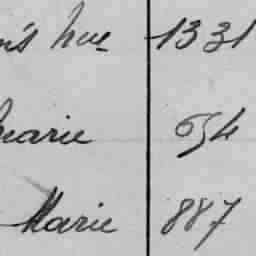 1331
marie 654
Marie 887